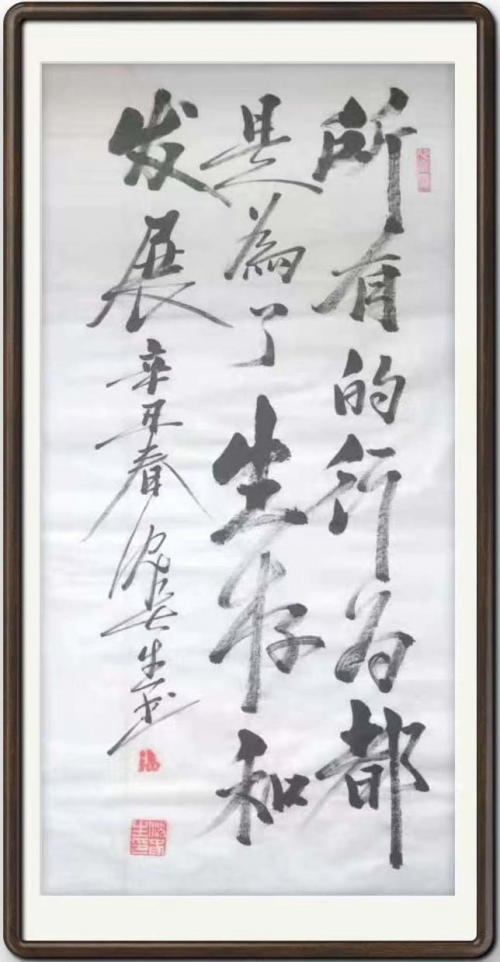 所有的行为都
是為了生存和
发展 辛丑春